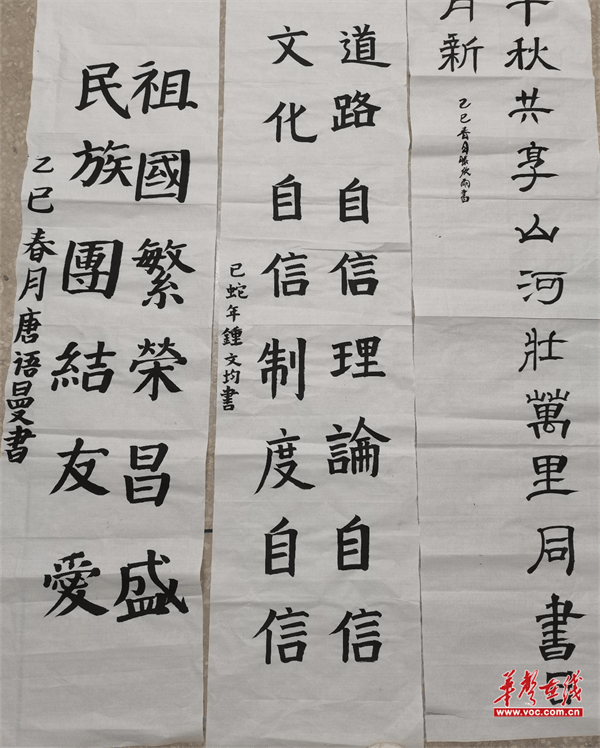 千秋共享山河壯萬里同書日
月新
乙巳春月書
道路自信理論自信
文化自信制度自信
巳蛇年鍾文均書
祖國繁榮昌盛
民族團結友愛
乙巳春月唐语曼書
华声在线
www.voc.com.cn